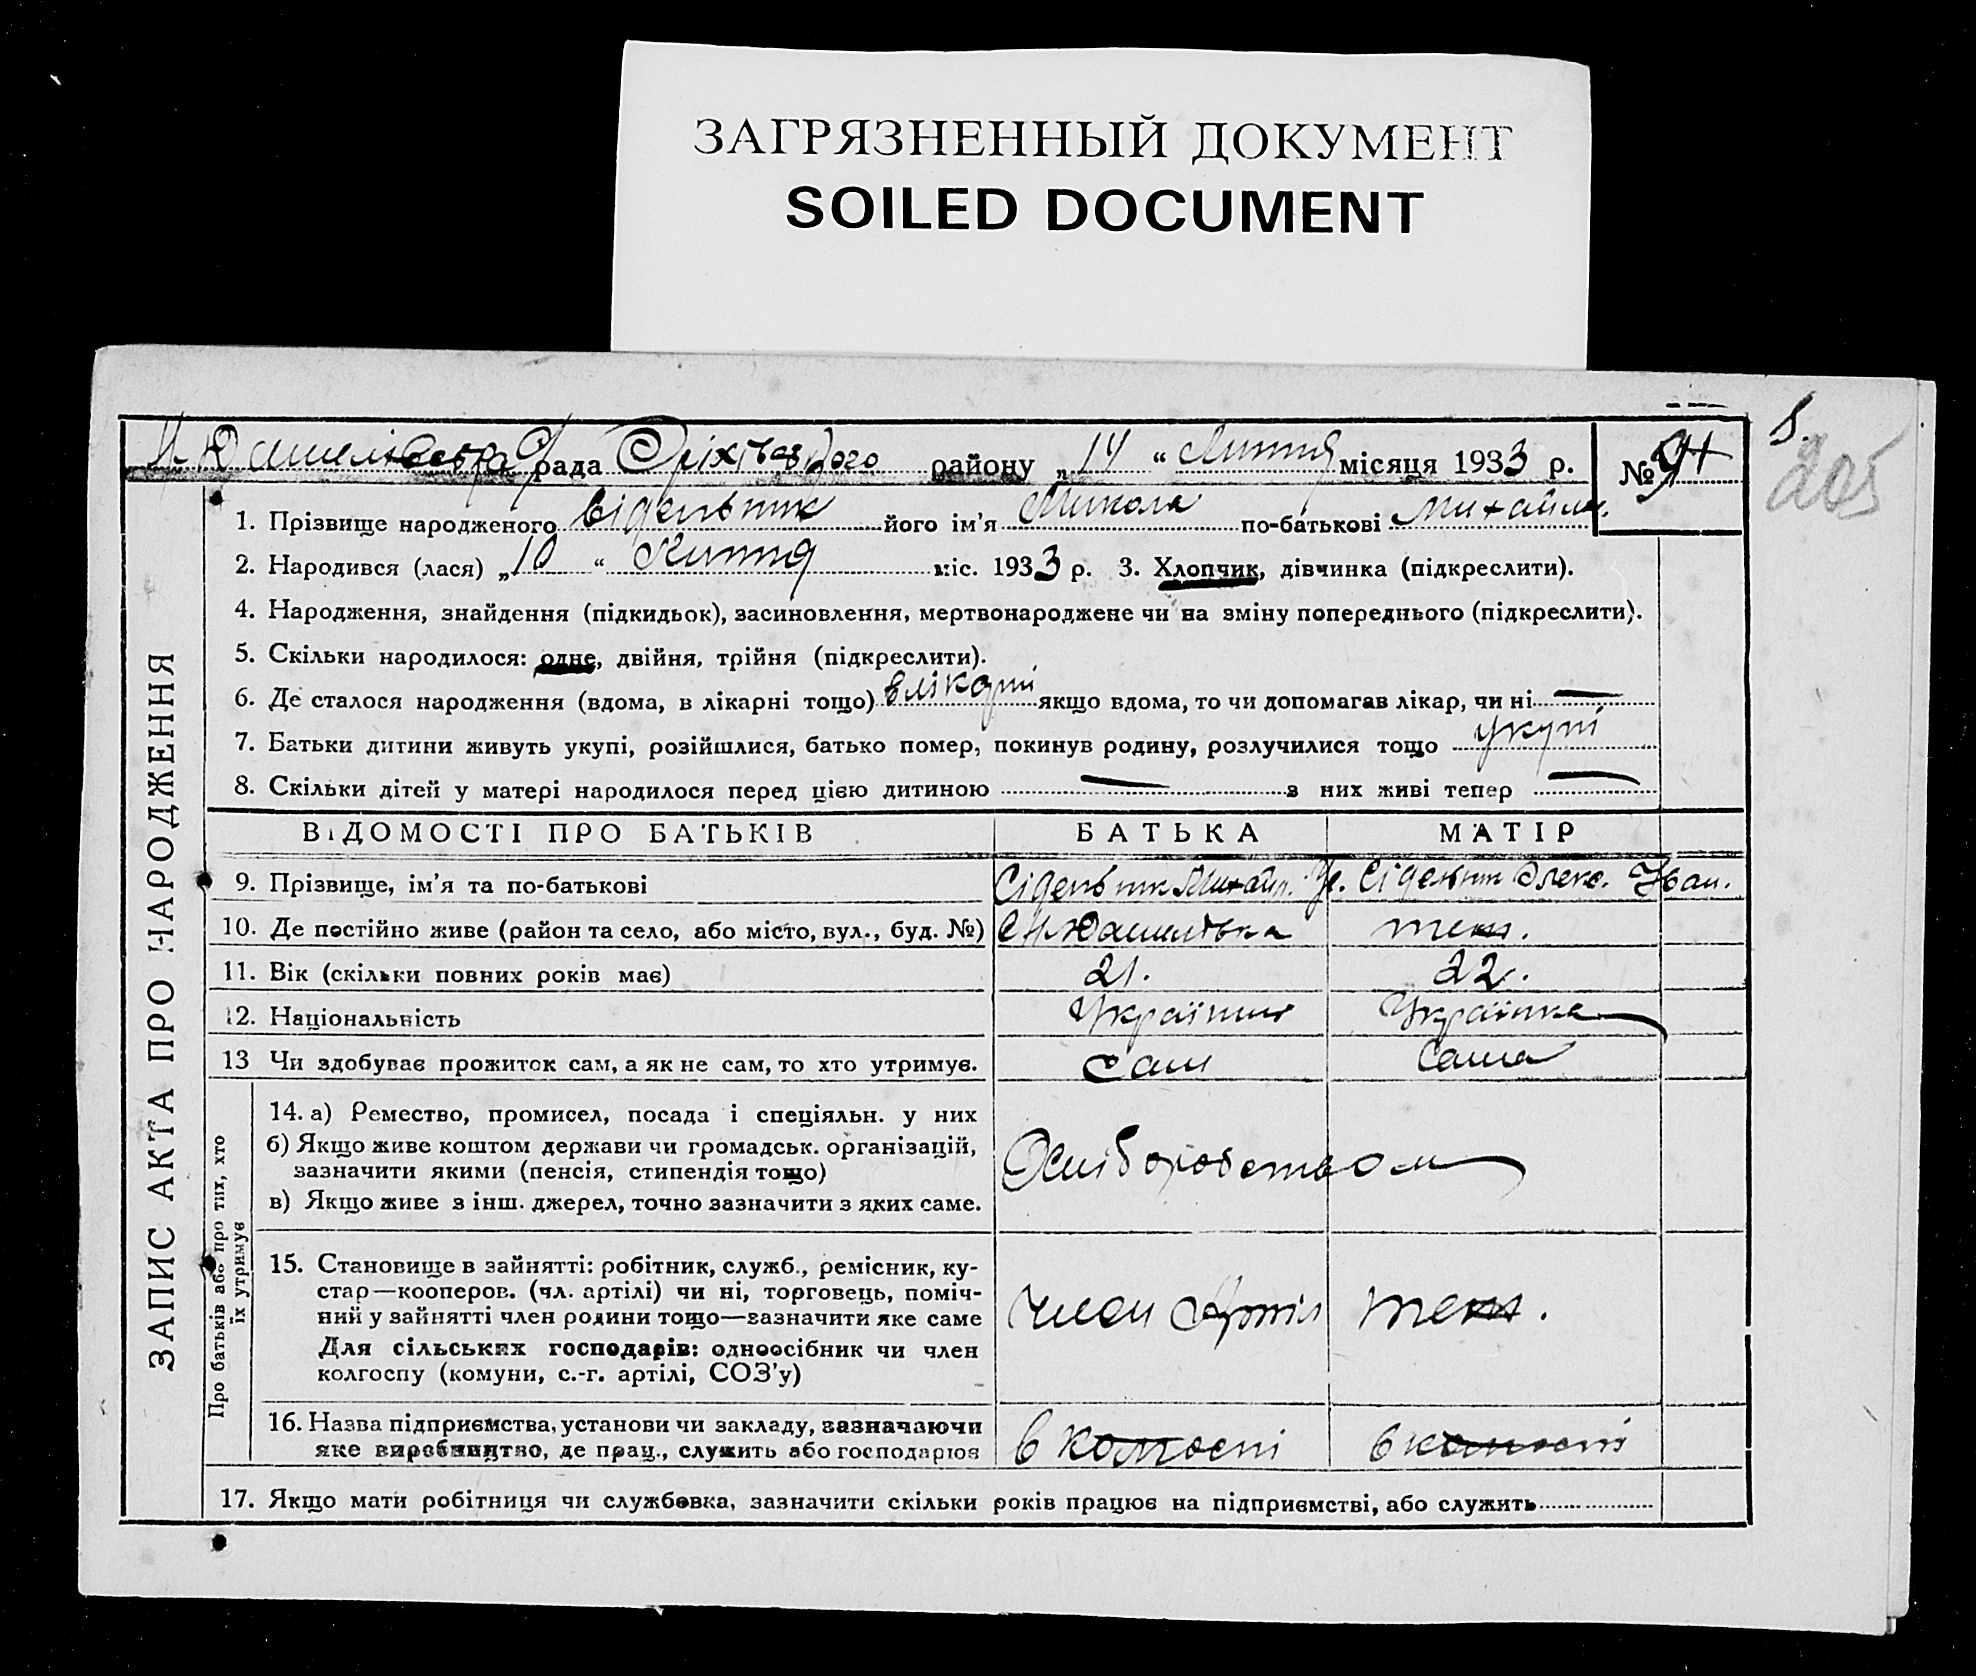 ЗАГРЯЗНЕННЫЙ ДОКУМЕНТ
SOILED DOCUMENT
рада Оріхівського району „14“ Липня місяця 1933 р.
№ 91
205
ЗАПИС АКТА ПРО НАРОДЖЕННЯ
1. Прізвище народженого Сідельник його ім’я Микола по-батькові Михайл.
2. Народився (лася) „10“ Липня міс. 1933 р. 3. Хлопчик, дівчинка (підкреслити).
4. Народження, знайдення (підкидьок), засиновлення, мертвонароджене чи на зміну попереднього (підкреслити).
5. Скільки народилося: одне, двійня, трійня (підкреслити).
6. Де сталося народження (вдома, в лікарні тощо) в лікарні якщо вдома, то чи допомагав лікар, чи ні —
7. Батьки дитини живуть укупі, розійшлися, батько помер, покинув родину, розлучилися тощо укупі
8. Скільки дітей у матері народилося перед цією дитиною — з них живі тепер —
ВІДОМОСТІ ПРО БАТЬКІВ БАТЬКА МАТІР
9. Прізвище, ім’я та по-батькові Сідельник Михайл. Сідельник Олекс. Іван.
10. Де постійно живе (район та село, або місто, вул., буд. №)
11. Вік (скільки повних років має) 21. 22.
12. Національність Українец Українка
13 Чи здобуває прожиток сам, а як не сам, то хто утримує. Сам Сама
Про батьків або про тих, хто
їх утримує
14. а) Ремество, промисел, посада і спеціяльн. у них
б) Якщо живе коштом держави чи громадськ. організацій,
зазначити якими (пенсія, стипендія тощо)
в) Якщо живе з інш. джерел, точно зазначити з яких саме.
Хліборобством
15. Становище в зайнятті: робітник, служб., ремісник, ку-
стар—кооперов. (чл. артілі) чи ні, торговець, поміч-
ний у зайнятті член родини тощо—зазначити яке саме
Для сільських господарів: одноосібник чи член
колгоспу (комуни, с.-г. артілі, СОЗ’у)
член Артіл
16. Назва підприємства, установи чи закладу, зазначаючи
яке виробництво, де прац., служить або господарює
в колгоспі в колгоспі
17. Якщо мати робітниця чи службовка, зазначити скільки років працює на підприємстві, або служить